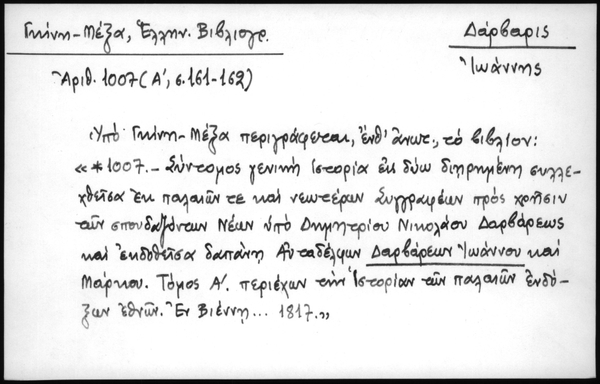 Γκίνη-Μέξα, Ἑλλην. Βιβλιογρ.
Δάρβαρις
Ἰωάννης
Ἀριθ. 1007 (Α', σ. 161-162)
Ὑπὸ Γκίνη-Μέξα περιγράφεται, ἔνθ' ἄνωτ., τὸ βιβλίον:
«*1007.- Σύντομος γενικὴ ἱστορία εἰς δύω διῃρημένη συλλε-
χθεῖσα ἐκ παλαιῶν τε καὶ νεωτέρων Συγγραφέων πρὸς χρῆσιν
τῶν σπουδαζόντων Νέων ὑπὸ Δημητρίου Νικολάου Δαρβάρεως
καὶ ἐκδοθεῖσα δαπάνῃ Αὐταδέλφων Δαρβάρεων Ἰωάννου καὶ
Μάρκου. Τόμος Α'. περιέχων τὴν Ἱστορίαν τῶν παλαιῶν ἐνδό-
ξων ἐθνῶν. Ἐν Βιέννῃ... 1817.»